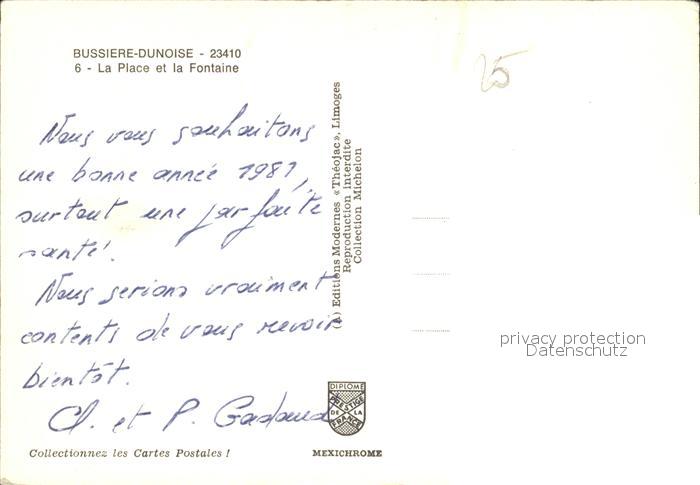 BUSSIERE-DUNOISE - 23410
6 - La Place et la Fontaine
25
Nous vous souhaitons
une bonne année 1981,
surtout une parfaite
santé.
Nous serions vraiment
contents de vous revoir
bientôt.
Cl. et P. Gadaud
(A) Editions Modernes «Théojac», Limoges
Reproduction interdite
Collection Michelon
privacy protection
Datenschutz
DIPLOME
PRESTIGE
DE LA
FRANCE
Collectionnez les Cartes Postales !
MEXICHROME